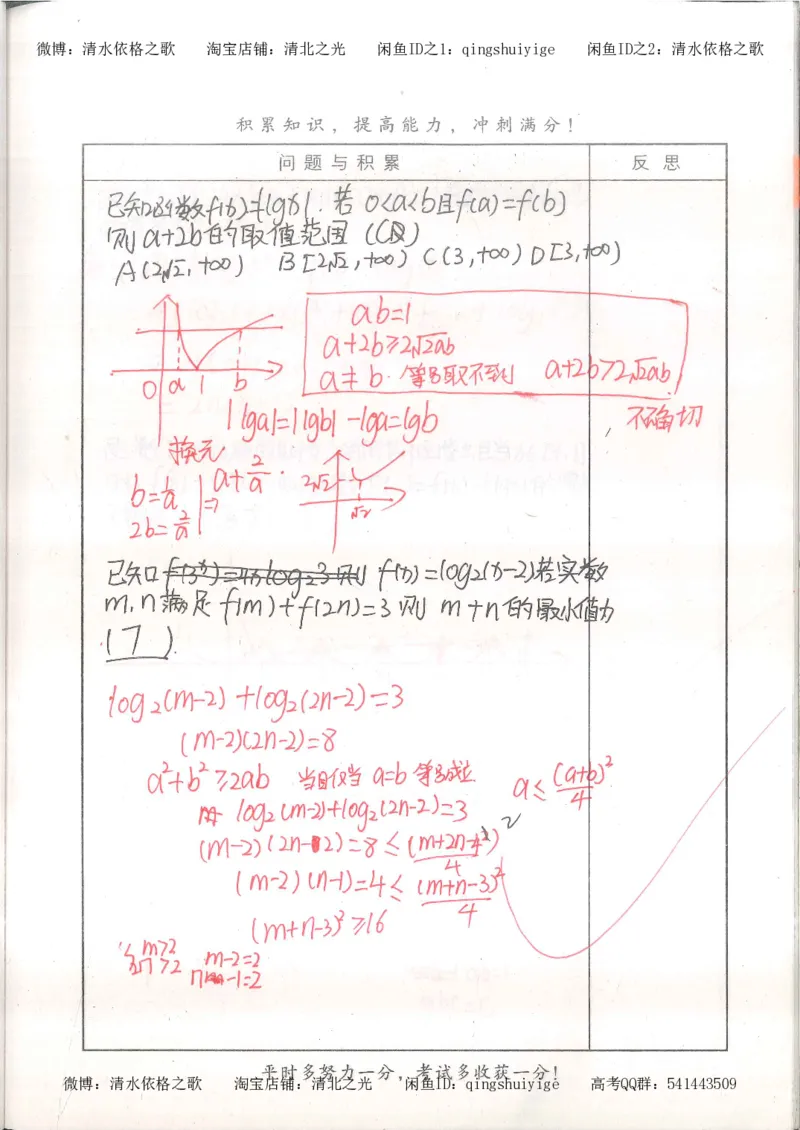 微博：清水依格之歌 淘宝店铺：清北之光 闲鱼ID之1：qingshuiyige 闲鱼ID之2：清水依格之歌
积累知识，提高能力，冲刺满分！
问题与积累 反思
已知函数f(x)=|lgx|．若 0<a<b且f(a)=f(b)
则 a+2b 的取值范围 (C)
A(2√2,+∞) B[2√2,+∞) C(3,+∞) D[3,+∞)
ab=1
a+2b≥2√2ab
a≠b．等号取不到 a+2b>2√2ab
0 a 1 b
|lga|=|lgb| -lga=lgb ，不确切
换元
b=1/a ⇒ a+2/a．
2b=2/a
2√2
√2
已知 f(x)=log₂(x-2)若实数
m,n满足 f(m)+f(2n)=3 则 m+n的最小值为
(7)．
log₂(m-2)+log₂(2n-2)=3
(m-2)(2n-2)=8
a²+b²≥2ab 当且仅当 a=b 等号成立
a≤(a+b)²/4
log₂(m-2)+log₂(2n-2)=3
(m-2)(2n-2)=8≤(m+2n-4)²/4
(m-2)(n-1)=4≤(m+n-3)²/4
(m+n-3)²≥16
m>2 m-2=2
2n>2 n-1=2
平时多努力一分，考试多收获一分！
微博：清水依格之歌 淘宝店铺：清北之光 闲鱼ID：qingshuiyige 高考QQ群：541443509